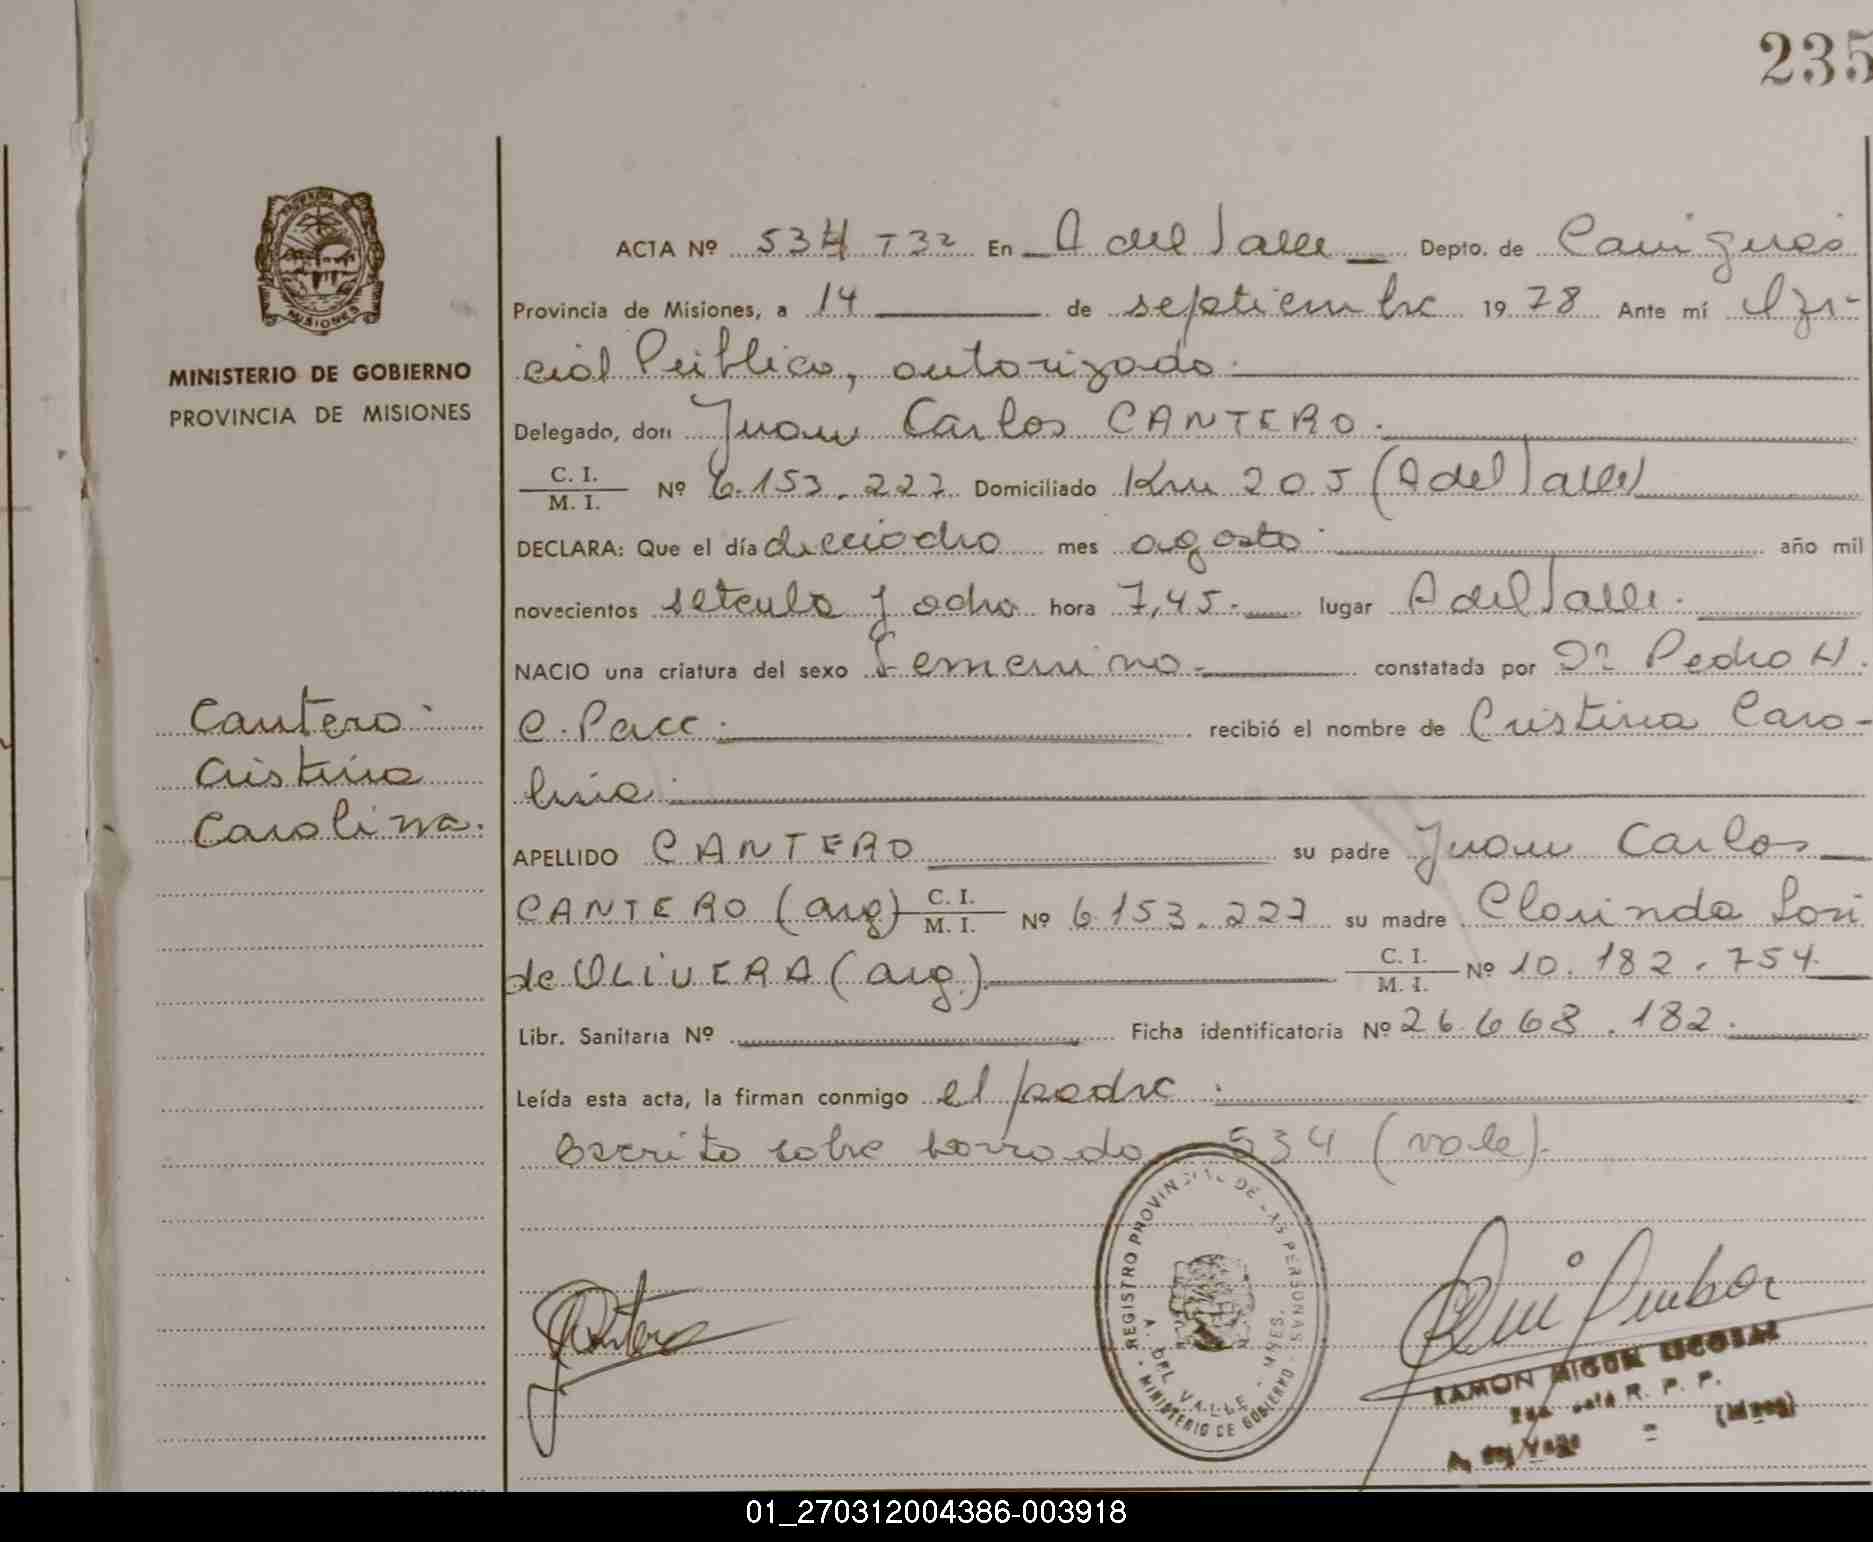 235
ACTA Nº 534 T 32 En A del Valle Depto. de Cainguás
Provincia de Misiones, a 14 de septiembre 1978 Ante mí Ofi-
cial Público, autorizado.
MINISTERIO DE GOBIERNO
PROVINCIA DE MISIONES
Delegado, don Juan Carlos CANTERO.
C. I.
M. I. Nº 6.153.227 Domiciliado Km 205 (A del Valle)
DECLARA: Que el día dieciocho mes agosto año mil
novecientos setenta y ocho hora 7,45.- lugar A del Valle.
NACIO una criatura del sexo Femenino.- constatada por Dr Pedro H.
C. recibió el nombre de Cristina Caro-
lina.
Cantero
Cristina
Carolina.
APELLIDO CANTERO su padre Juan Carlos
CANTERO (arg) C. I.
M. I. Nº 6.153.227 su madre Clorinda
de OLIVERA (arg.) C. I.
M. I. Nº 10.182.754
Libr. Sanitaria Nº Ficha identificatoria Nº 26.668.182.
Leída esta acta, la firman conmigo el padre.
Escrito sobre borrado 534 (vale).
REGISTRO PROVINCIAL DE LAS PERSONAS
A. DEL VALLE - MNES.
MINISTERIO DE GOBIERNO
RAMON
R. P. P.
A. del Valle (Mnes)
MISIONES
01_270312004386-003918